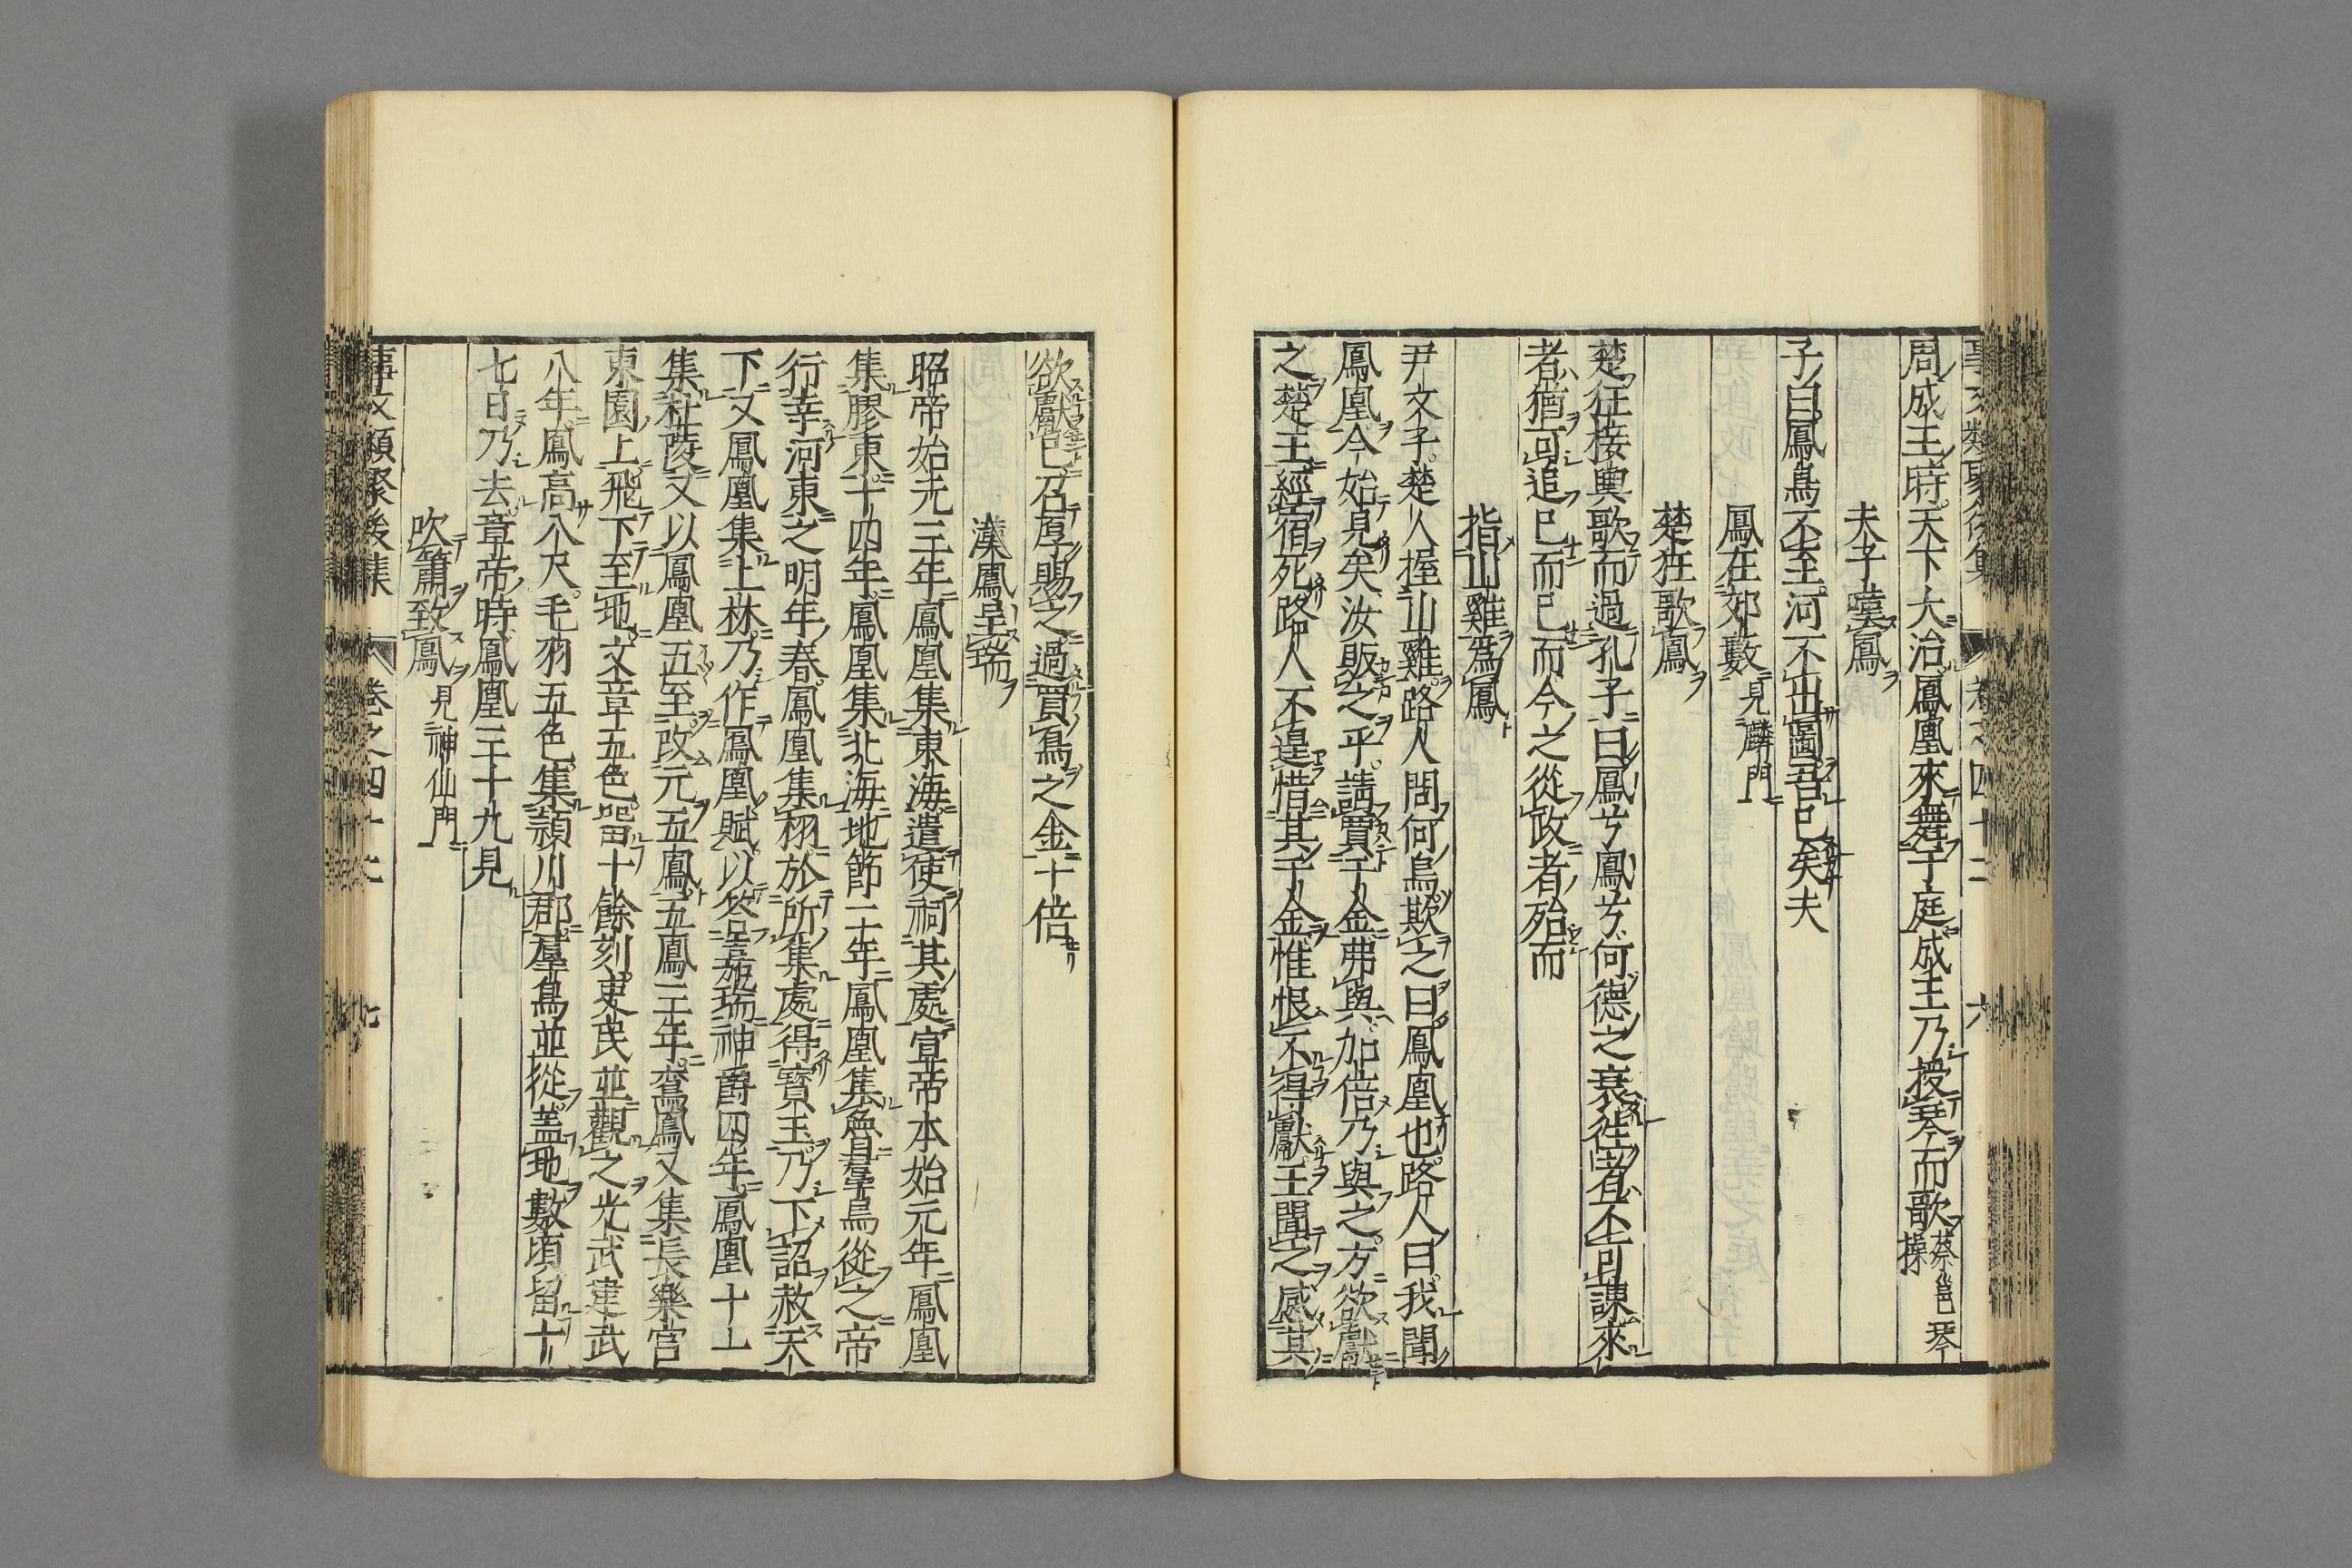 事文類聚後集 卷之四十二 六
周成王時天下大治鳳凰來舞于庭成王乃授琴而歌蔡邕琴操
夫子嘆鳳
子曰鳳鳥不至河不出圖吾已矣夫
鳳在郊藪見麟門
楚狂歌鳳
楚狂接輿歌而過孔子曰鳳兮鳳兮何德之衰往者不可諫來
者猶可追已而已而今之從政者殆而
指山雞為鳳
尹文子楚人握山雞路人問何鳥欺之曰鳳凰也路人曰我聞
鳳凰今始見矣汝販之乎請買千金弗與加倍乃與之方欲獻
之楚王經宿死路人不遑惜其千金惟恨不得獻王聞之感其
欲獻己召厚賜之過買鳥之金十倍
漢鳳呈瑞
昭帝始元三年鳳凰集東海遣使祠其處宣帝本始元年鳳凰
集膠東十四年鳳凰集北海地節二年鳳凰集魯羣鳥從之帝
行幸河東之明年春鳳凰集栩於所集處得寶玉乃下詔赦天
下又鳳凰集上林乃作鳳凰賦以答嘉瑞神爵四年鳳凰十一
集杜陵又以鳳凰五至改元五鳳五鳳三年鸞鳳又集長樂宮
東園上飛下至地文章五色畱十餘刻吏民並觀之光武建武
八年鳳高八尺毛羽五色集潁川郡羣鳥並從蓋地數頃留十
七日乃去章帝時鳳凰三十九見
吹簫致鳳見神仙門
事文類聚後集 卷之四十二 七